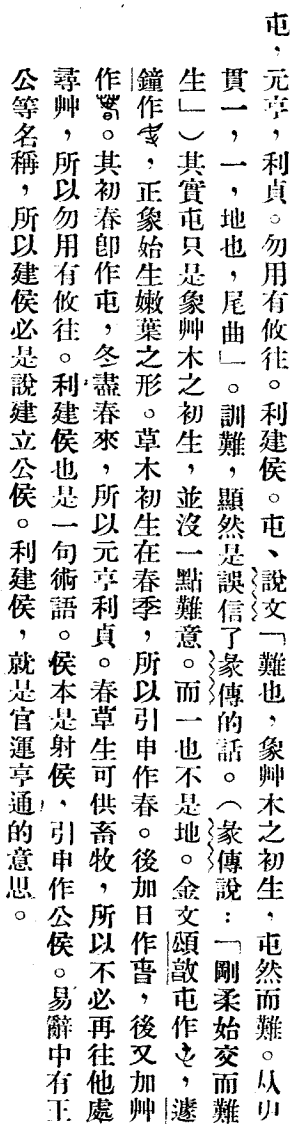 屯，元亨，利貞。勿用有攸往。利建侯。屯、說文「難也，象艸木之初生，屯然而難。从屮
貫一，一，地也，尾曲」。訓難，顯然是誤信了彖傳的話。（彖傳說：「剛柔始交而難
生」）其實屯只是象艸木之初生，並沒一點難意。而一也不是地。金文頌敦屯作，遽
鐘作，正象始生嫩葉之形。草木初生在春季，所以引申作春。後加日作旾，後又加艸
作。其初春卽作屯，冬盡春來，所以元亨利貞。春草生可供畜牧，所以不必再往他處
尋艸，所以勿用有攸往。利建侯也是一句術語。侯本是射侯，引申作公侯。易辭中有王
公等名稱，所以建侯必是說建立公侯。利建侯，就是官運亨通的意思。